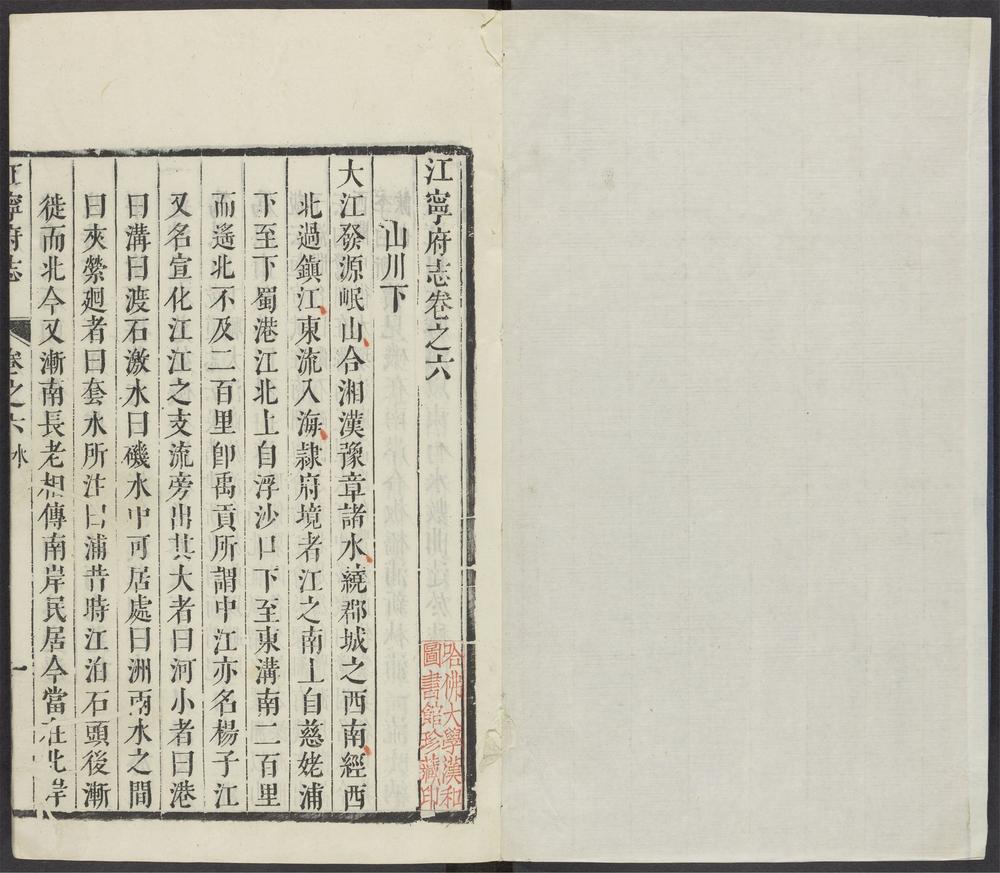 江寧府志卷之六
山川下
大江發源岷山合湘漢豫章諸水繞郡城之西南經西
北過鎮江東流入海隷府境者江之南上自慈姥浦
下至下蜀港江北上自浮沙口下至東溝南二百里
而遙北不及二百里即禹貢所謂中江亦名楊子江
又名宣化江江之支流旁出其大者曰河小者曰港
曰溝曰渡石激水曰磯水中可居處曰洲兩水之間
曰夾縈廻者曰套水所注曰浦昔時江泊石頭後漸
徙而北今又漸南長老相傳南岸民居今當在北岸
江寧府志
卷之六
水
一
哈佛大學漢和
圖書館珍藏印